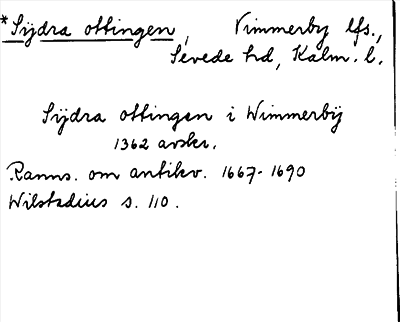 *Sÿdra ottingen, Vimmerby lfs.,
Sevede hd, Kalm. l.
Sÿdra ottingen i Wimmerbÿ
1362 avskr.
Ranns. om antikv. 1667-1690
Wilstadius s. 110.